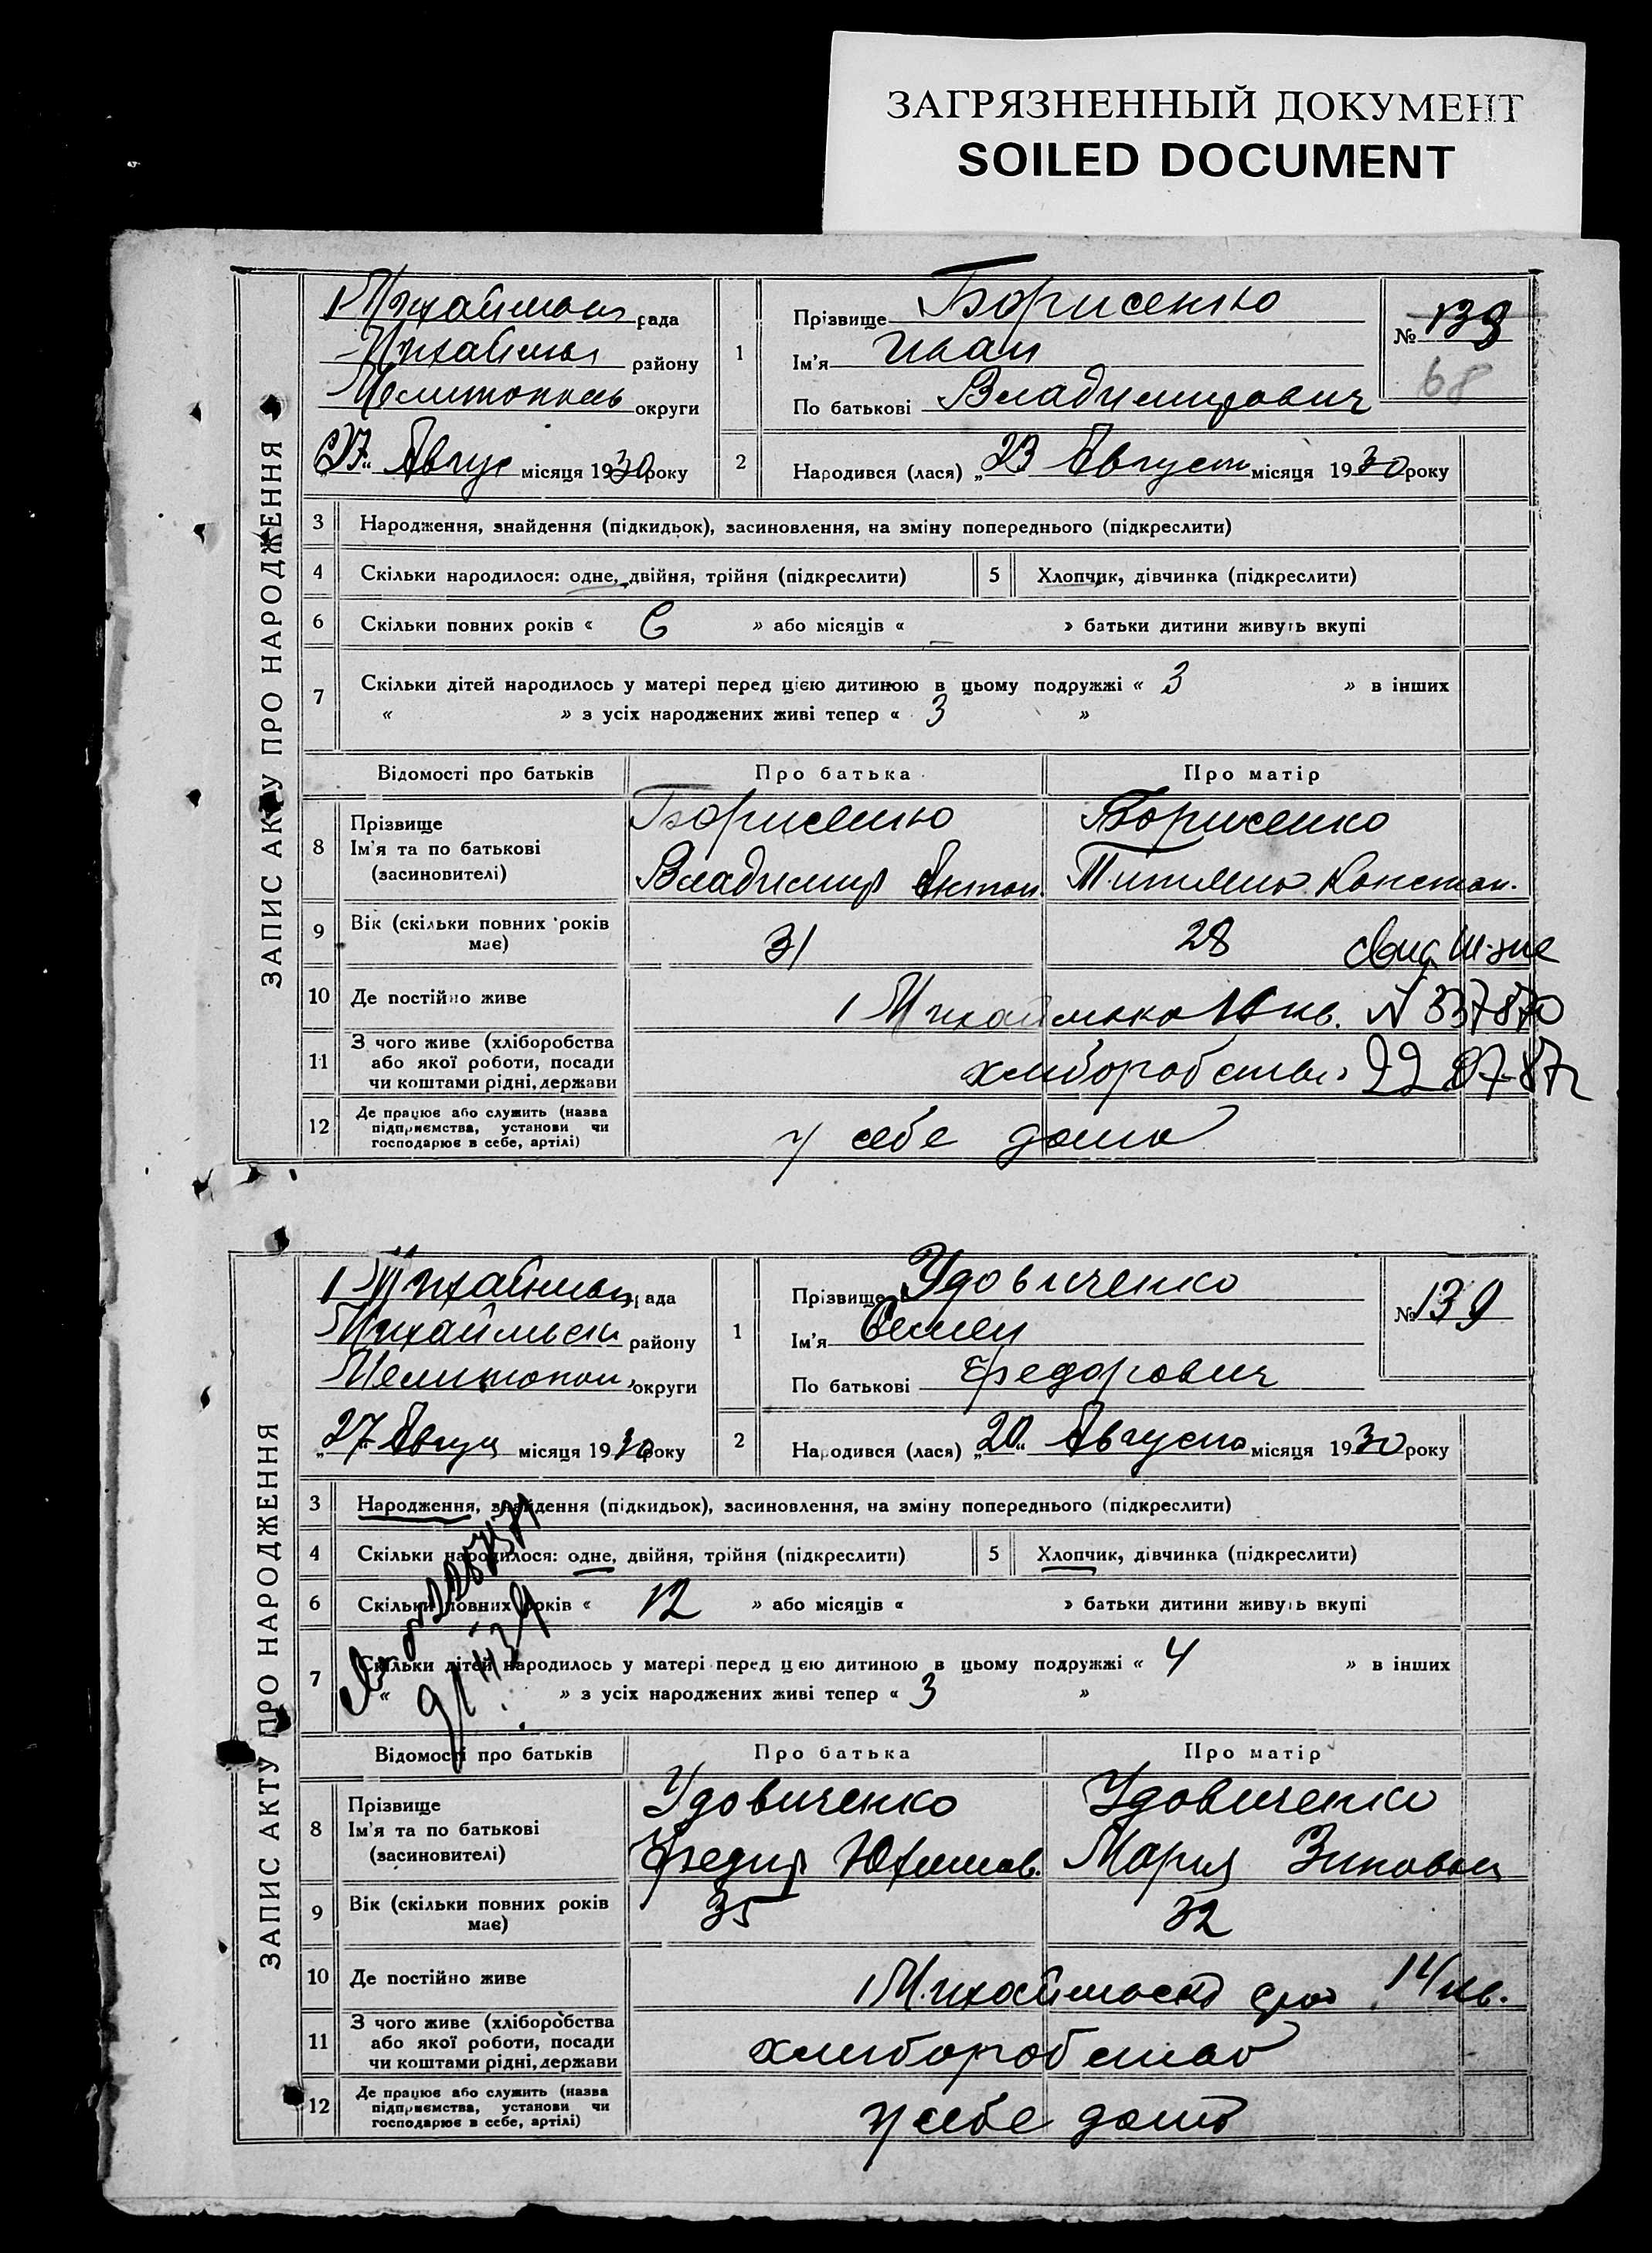 ЗАГРЯЗНЕННЫЙ ДОКУМЕНТ
SOILED DOCUMENT
ЗАПИС АКТУ ПРО НАРОДЖЕННЯ
рада
району
округи
27 Август місяця 1930 року
1
Прізвище Борисенко
Ім'я Иван
По батькові Владимирович
№ 138
68
2
Народився (лася) „23 Августа місяця 1930 року
3 Народження, знайдення (підкидьок), засиновлення, на зміну попереднього (підкреслити)
4 Скільки народилося: одне, двійня, трійня (підкреслити) 5 Хлопчик, дівчинка (підкреслити)
6 Скільки повних років « 6 » або місяців « – » батьки дитини живуть вкупі
7 Скільки дітей народилось у матері перед цією дитиною в цьому подружжі « 3 » в інших
« » з усіх народжених живі тепер « 3 »
Відомості про батьків Про батька Про матір
8 Прізвище
Ім'я та по батькові
(засиновителі)
Борисенко
Владимир Антон.
Борисенко
Констан.
9 Вік (скільки повних років має) 31 28
10 Де постійно живе
№ 337870
11 З чого живе (хліборобства або якої роботи, посади чи коштами рідні, держави
хлиборобство 22 07-87г
12 Де працює або служить (назва підприємства, установи чи господарює в себе, артілі)
у себе дома
ЗАПИС АКТУ ПРО НАРОДЖЕННЯ
рада
району
округи
„27 Август місяця 1930 року
1
Прізвище Удовиченко
Ім'я Семен
По батькові Федорович
№ 139
2
Народився (лася) „20“ Августа місяця 1930 року
3 Народження, знайдення (підкидьок), засиновлення, на зміну попереднього (підкреслити)
4 Скільки народилося: одне, двійня, трійня (підкреслити) 5 Хлопчик, дівчинка (підкреслити)
6 Скільки повних років « 12 » або місяців « » батьки дитини живуть вкупі
7 Скільки дітей народилось у матері перед цією дитиною в цьому подружжі « 4 » в інших
« » з усіх народжених живі тепер « 3 »
Відомості про батьків Про батька Про матір
8 Прізвище
Ім'я та по батькові
(засиновителі)
Удовиченко
Федир Юхимов.
Удовиченко
Мария Зиновьи
9 Вік (скільки повних років має) 35 32
10 Де постійно живе
14 кв.
11 З чого живе (хліборобства або якої роботи, посади чи коштами рідні, держави
хлиборобство
12 Де працює або служить (назва підприємства, установи чи господарює в себе, артілі)
у себе дома